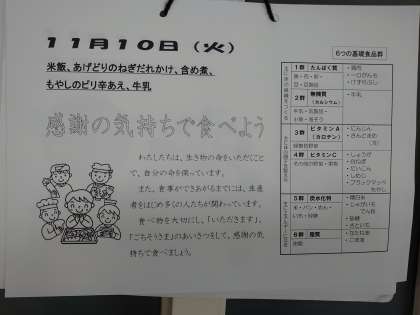 11月10日（火）
米飯、あげどりのねぎだれかけ、含め煮、
もやしのピリ辛あえ、牛乳
感謝の気持ちで食べよう
わたしたちは、生き物の命をいただくこと
で、自分の命を保っています。
また、食事ができあがるまでには、生産
者をはじめ多くの人たちが関わっています。
食べ物を大切にし、「いただきます」、
「ごちそうさま」のあいさつをして、感謝の気
持ちで食べましょう。
6つの基礎食品群
1群 たんぱく質
・鶏肉
2群 無機質
（カルシウム）
・牛乳
3群 ビタミンA
（カロテン）
・にんじん
4群 ビタミンC
・しょうが
・だいこん
・しめじ
・ブラックマッペ
もやし
5群 炭水化物
米・パン・めん・
いも・砂糖
・じゃがいも
でん粉
・砂糖
・さといも
6群 脂質
・なたね油
・ごま油